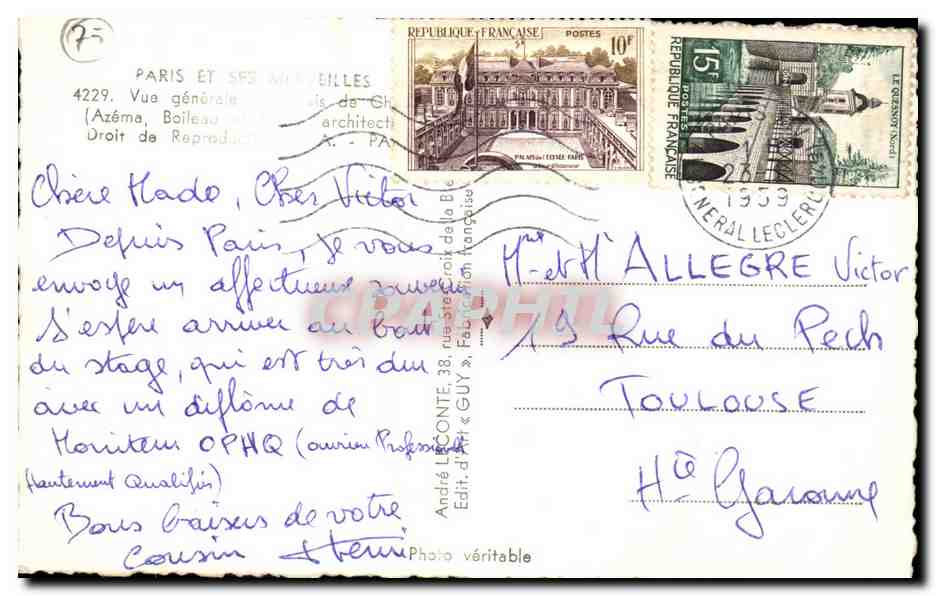 75
PARIS ET SES MERVEILLES
4229. Vue générale
(Azéma, Boileau architect
Droit de Reprodu A. - PA
REPUBLIQUE FRANÇAISE POSTES
10F
PALAIS de l'ELYSEE PARIS
15F
LE QUESNOY (Nord)
POSTES
REPUBLIQUE FRANÇAISE
1959
GENERAL LECLERC
Chère Mado, Cher Victor
Depuis Paris, je vous
envoye un affectueux souvenir
J'espère arriver au bout
du stage, qui est très dur
avec un diplôme de
Moniteur OPHQ (ouvrier Professionnel
Hautement Qualifiés)
Bons baisers de votre
cousin Henri
André LECONTE, 38, rue Ste-Croix de la Bre
Edit. d'Art « GUY », Fabrication française
Photo véritable
CPAPHIL
Mme et Mr ALLEGRE Victor
19 Rue du Pech
TOULOUSE
Hte Garonne